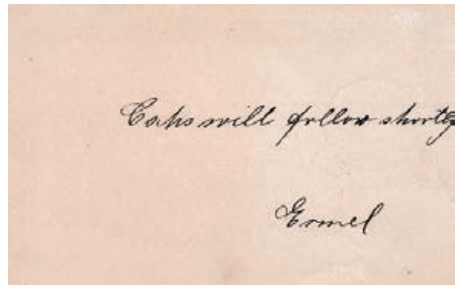 Caps will follow shortly
Ermel